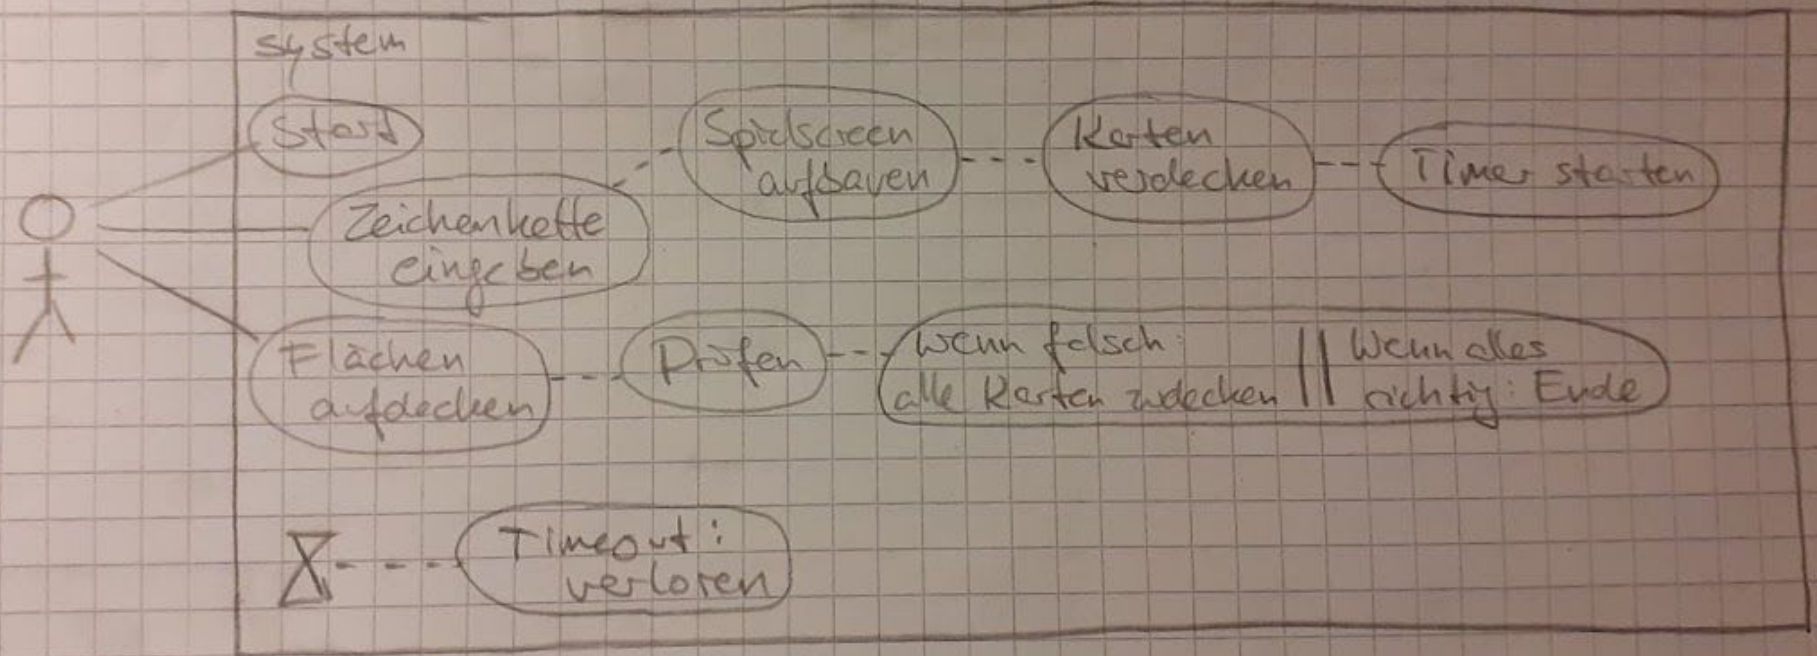 system
Start
Spielscreen
aufbauen
Karten
verdecken
Timer starten
Zeichenkette
eingeben
Flächen
aufdecken
Prüfen
Wenn falsch:
alle Karten zudecken
||
Wenn alles
richtig: Ende
Timeout:
verloren